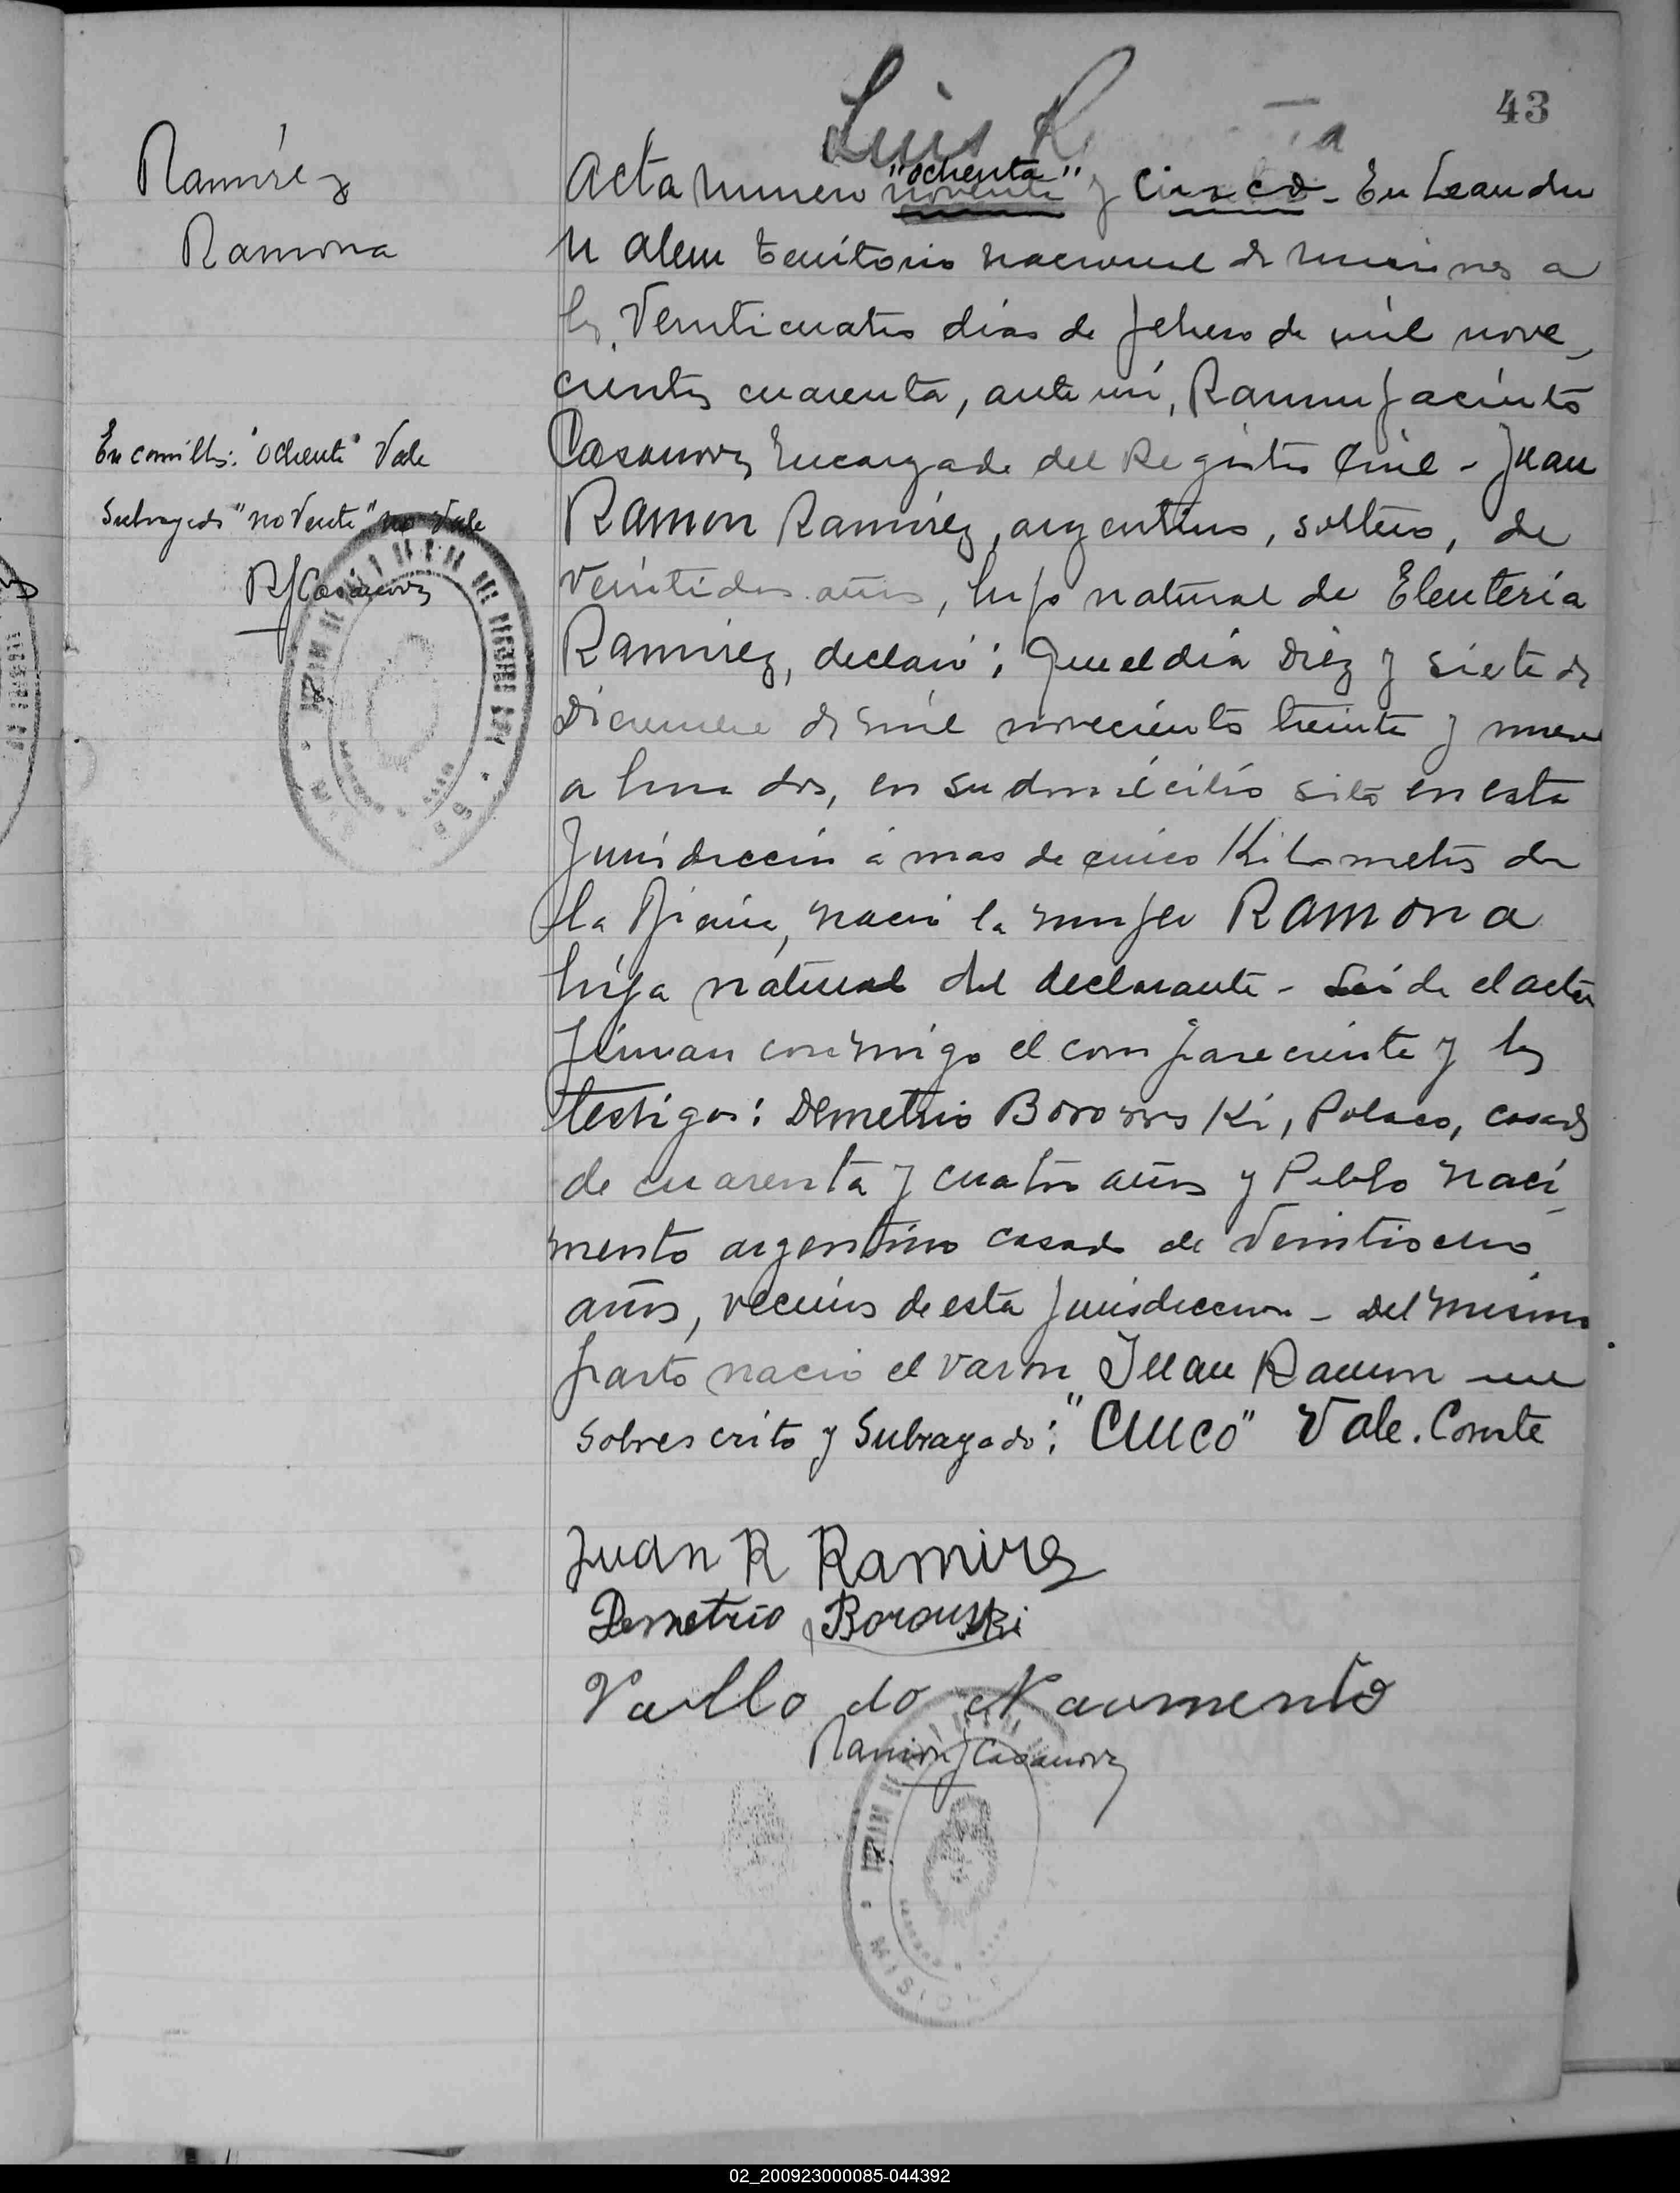 43
Luis
Ramírez
Ramona
Acta numero "ochenta" y cinco - En Leandro
N Alem territorio nacional de misiones a
los Veinticuatro días de febrero de mil nove
cientos cuarenta, ante mí, Ramon Jacinto
Casanova Encargado del Registro Civil - Juan
Ramon Ramírez, argentino, soltero, de
Veintidos años, hijo natural de Eleuteria
Ramírez, declaró: Que el día Diez y siete de
Diciembre de mil novecientos treinta y nueve
a hora dos, en su domicilio sito en esta
Jurisdiccion a mas de cinco Kilometros de
la oficina, nació la mujer RAMONA
hija natural del declarante - Leída el acta
firman conmigo el compareciente y los
testigos: Demetrio Borowski, Polaco, casado
de cuarenta y cuatro años y Pablo Naci
mento argentino casado de Veintiocho
años, vecinos de esta Jurisdiccion - Del mismo
parto nacio el varon Juan Ramon
Sobrescrito y Subrayado: "CINCO" Vale. Conste
En comillas: "Ochenta" Vale
Subrayado "noventa" no Vale
RJCasanova
Juan R Ramirez
Demetrio Borouski
do Naumento
Ramón J Casanova
MISIONES
02_200923000085-044392